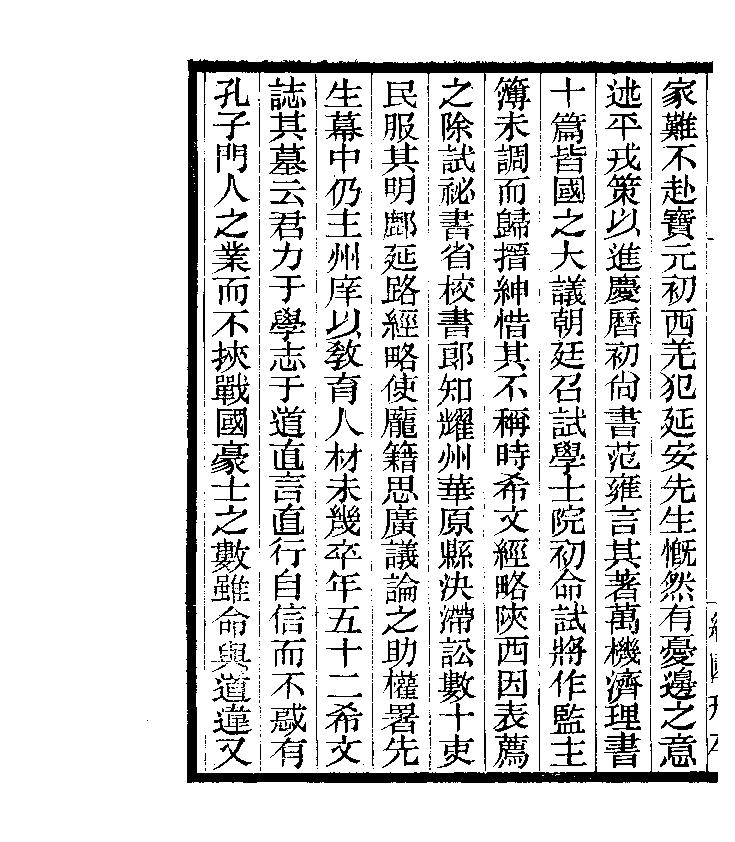 家難不赴寶元初西羌犯延安先生慨然有憂邊之意
述平戎策以進慶曆初尙書范雍言其著萬機濟理書
十篇皆國之大議朝廷召試學士院初命試將作監主
簿未調而歸搢紳惜其不稱時希文經略陝西因表薦
之除試祕書省校書郞知耀州華原縣決滯訟數十吏
民服其明鄜延路經略使龐籍思廣議論之助權署先
生幕中仍主州庠以敎育人材未幾卒年五十二希文
誌其墓云君力于學志于道直言直行自信而不惑有
孔子門人之業而不挾戰國豪士之數雖命與道違又